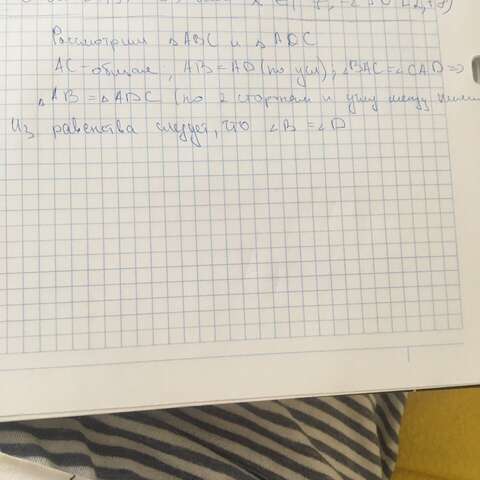 Рассмотрим △ABC и △ADC
AC - общая; AB = AD (по усл), ∠BAC = ∠CAD =>
△AB = △ADC (по 2 сторонам и углу между ними
Из равенства следует, что ∠B = ∠D